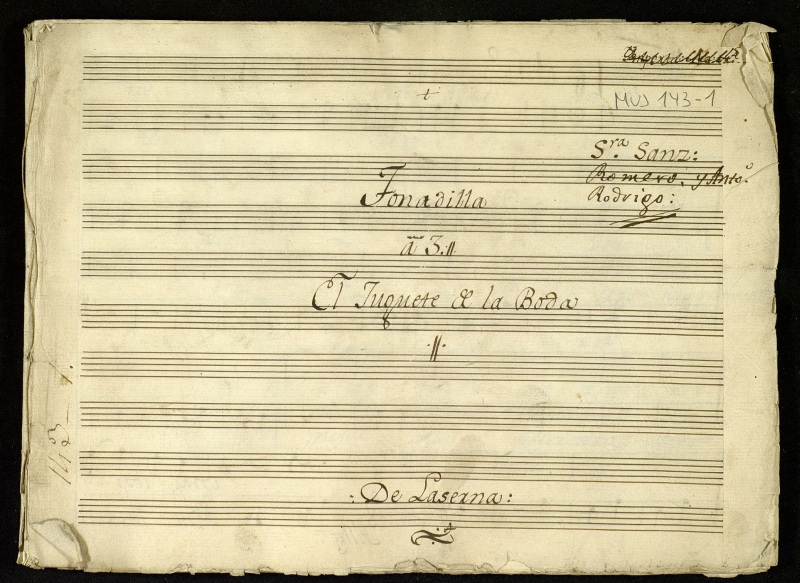 MUS 143-1
Sra Sanz:
Romero, y Anto.
Rodrigo:
Tonadilla
á 3.
El Juguete de la Boda
143-1.
: De Laserna: